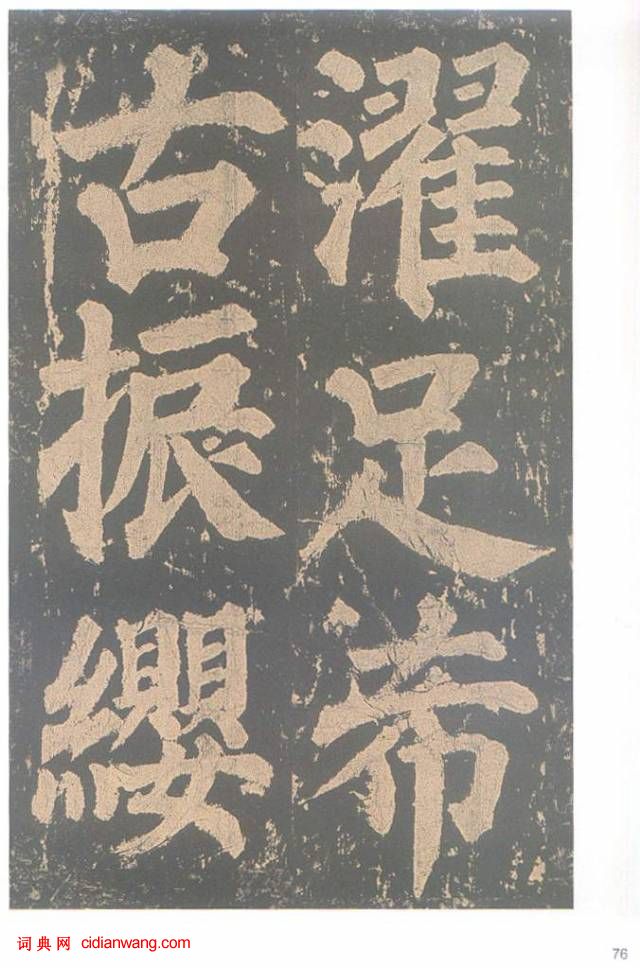 濯足希
古振纓
词典网 cidianwang.com
76